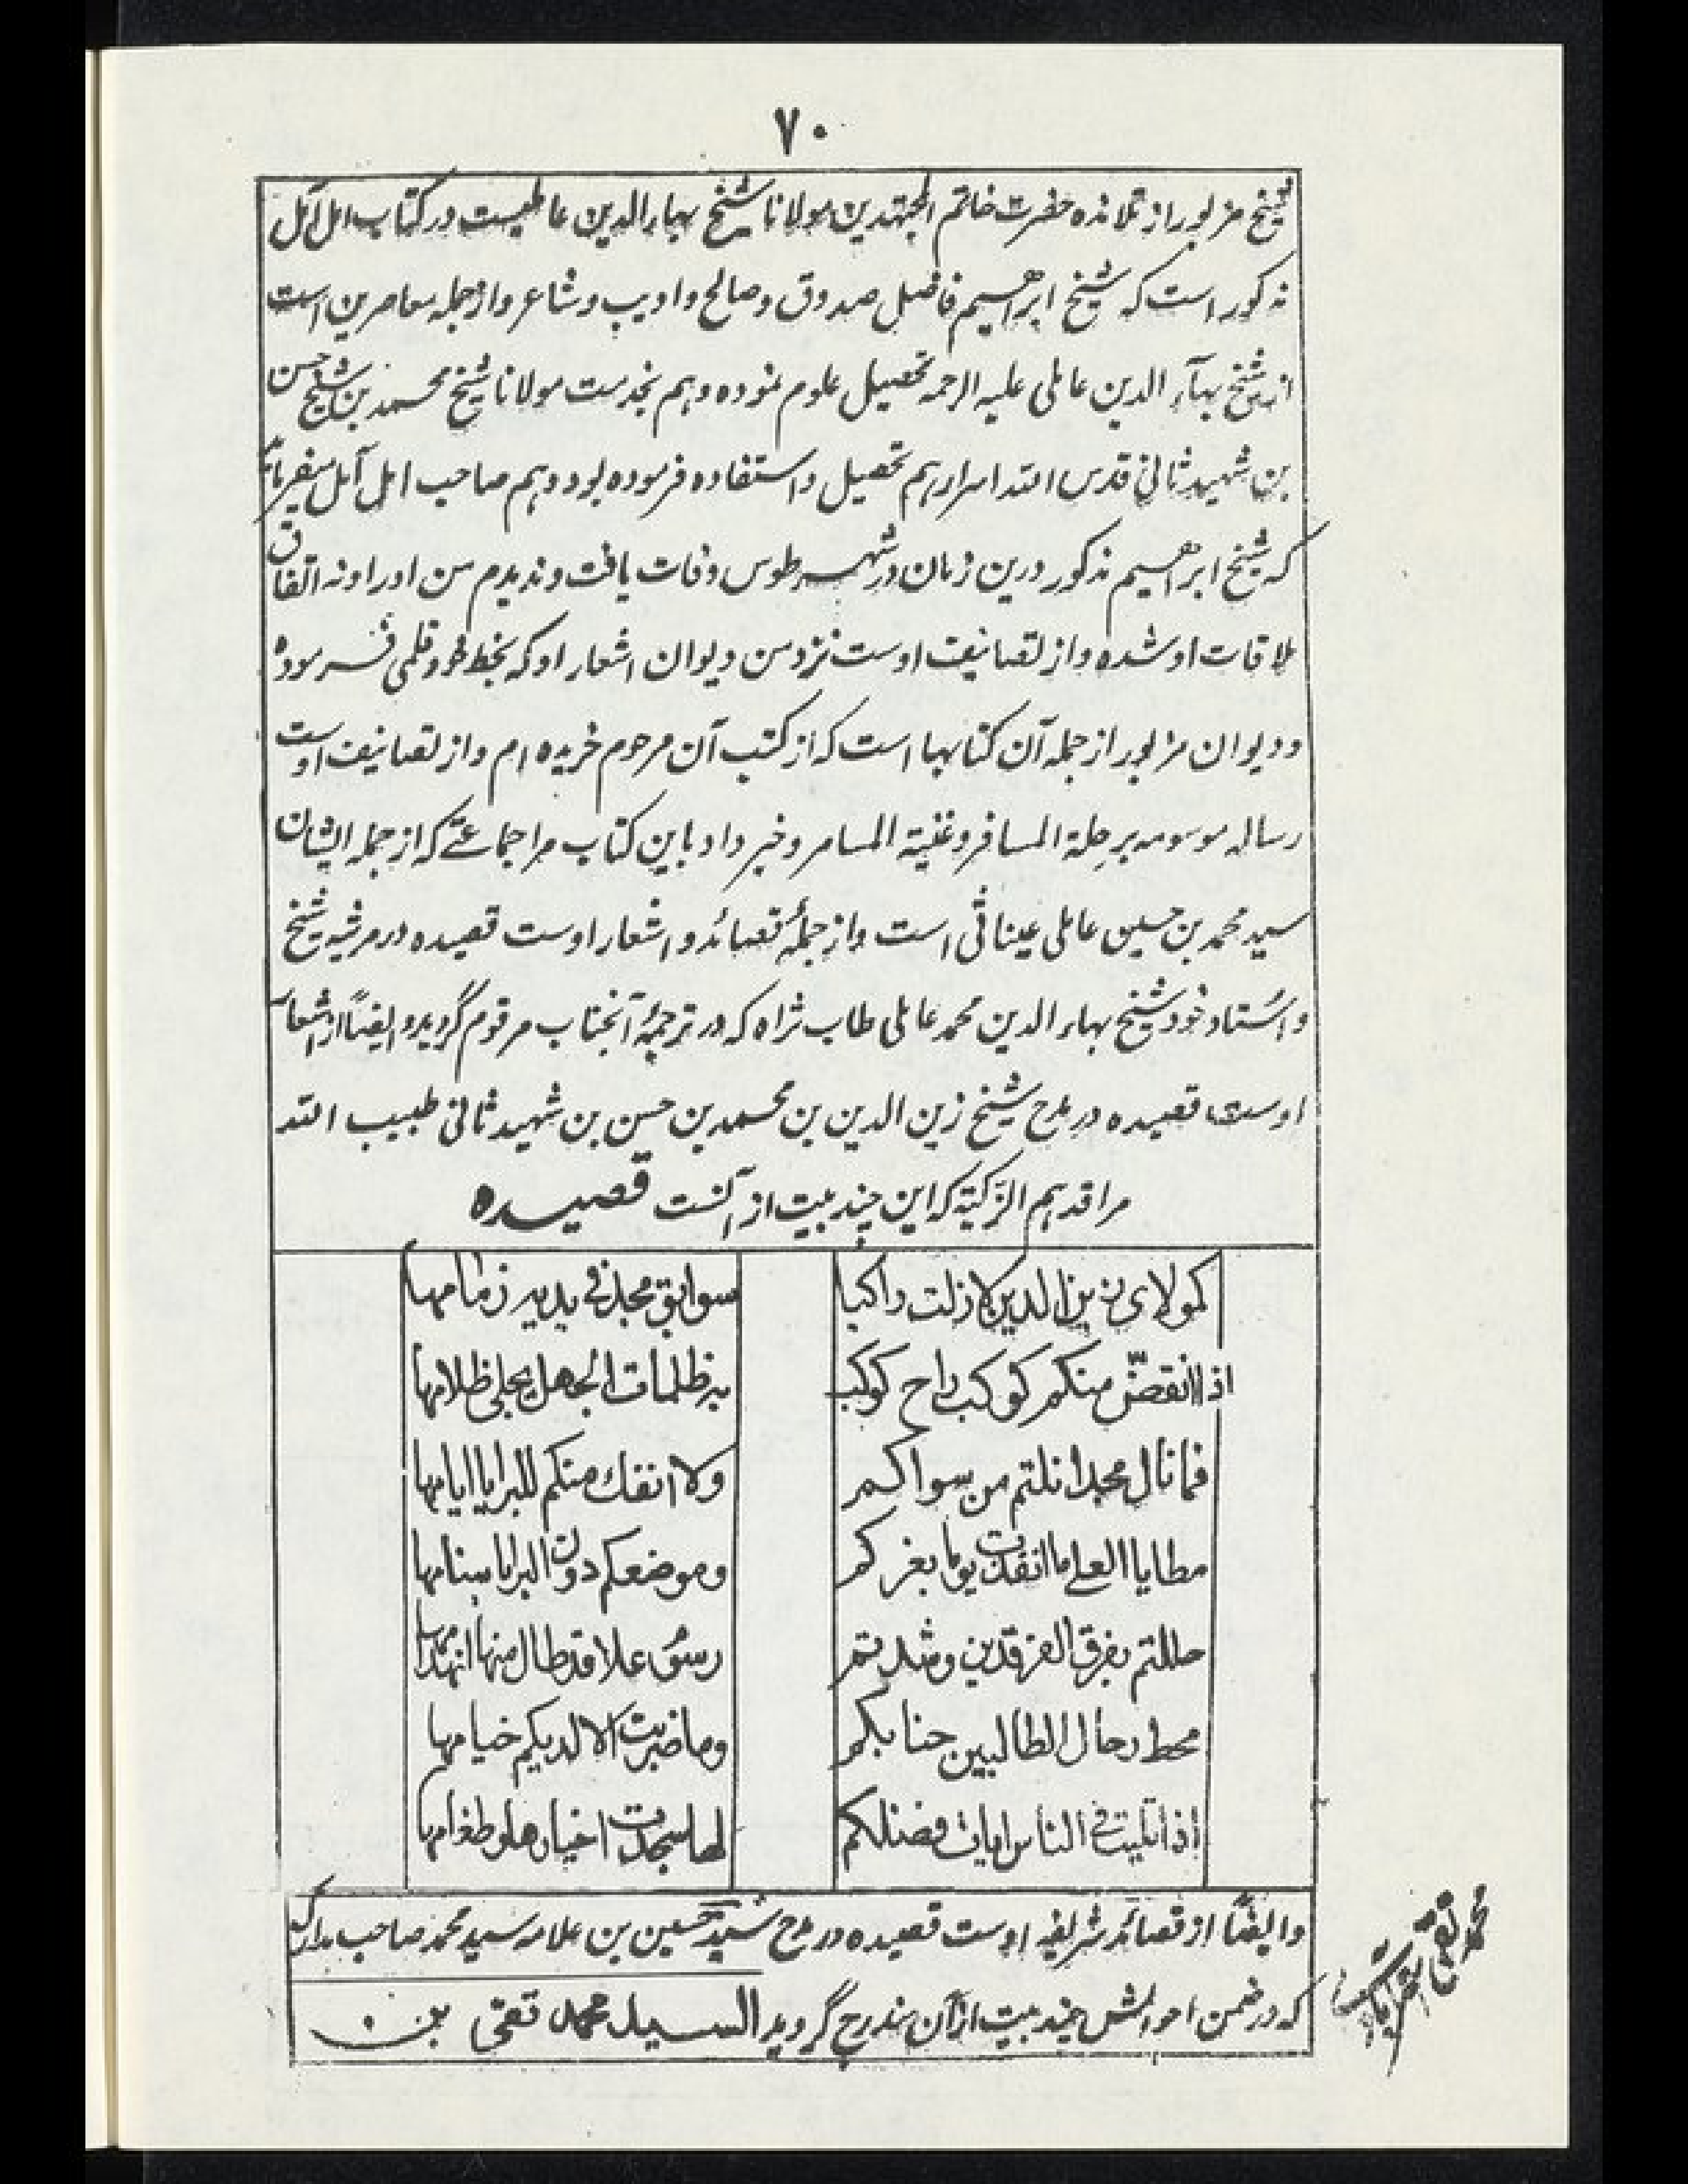 ۷۰
شیخ مزبور از تلامذه حضرت خاتم المجتهدین مولانا شیخ بهاء الدین عاملیست در کتاب امل آمل
مذکور است که شیخ ابراهیم فاضل صدوق و صالح و ادیب و شاعر و از جمله معاصرین است
از شیخ بهآء الدین عاملی علیه الرحمه تحصیل علوم نموده و هم بخدمت مولانا شیخ محمد بن شیخ حسن
بن شهید ثانی قدس الله اسرارهم تحصیل و استفاده فرموده بود و هم صاحب امل آمل میفرماید
که شیخ ابراهیم مذکور درین زمان در شهر طوس وفات یافت و ندیدم من او را و نه اتفاق
ملاقات او شده و از تصانیف اوست نزد من دیوان اشعار او که بخط خود قلمی فرموده
و دیوان مزبور از جمله آن کتابها است که از کتب آن مرحوم خریده ام و از تصانیف اوست
رساله موسومه برحلة المسافر و غنیة المسامر و خبر داد باین کتاب مرا جماعتے که از جمله ایشان
سید محمد بن حسین عاملی عیناثی است و از جملهٔ قصائد و اشعار اوست قصیده در مرثیه شیخ
و استاد خود شیخ بهاء الدین محمد عاملی طاب ثراه که در ترجمهٔ آنجناب مرقوم گردید و ایضاً از اشعار
اوست قصیده در مدح شیخ زین الدین بن محمد بن حسن بن شهید ثانی طیب الله
مراقدهم الزکیة که این چند بیت از آنست قصیده
کمولای زین الدین لا زلت راکبا سوابق مجد فی یدیه زمامها
اذا انقضّ منکم کوکب راح کوکب به ظلمات الجهل یجلی ظلامها
فما نال مجدا نلتم من سواکم ولا انفك منکم للبرایا ایامها
مطایا العلے ما انقدت یوما بغیرکم وموضعکم دون البرایا سنامها
حللتم بفرق الفرقدین وشدتم رسوم علا قد طال منها انهدامها
محط رحال الطالبین جنابکم وما ضربت الا لدیکم خیامها
اذا تلیت فی الناس ایات فضلکم لها سجدت اخیارها وطغامها
و ایضًا از قصائد شریفه اوست قصیده در مدح سید حسین بن علامه سید محمد صاحب مدارک
که در ضمن احوالش چند بیت از آن مندرج گردید السید محمد تقی بن
محمد تقی